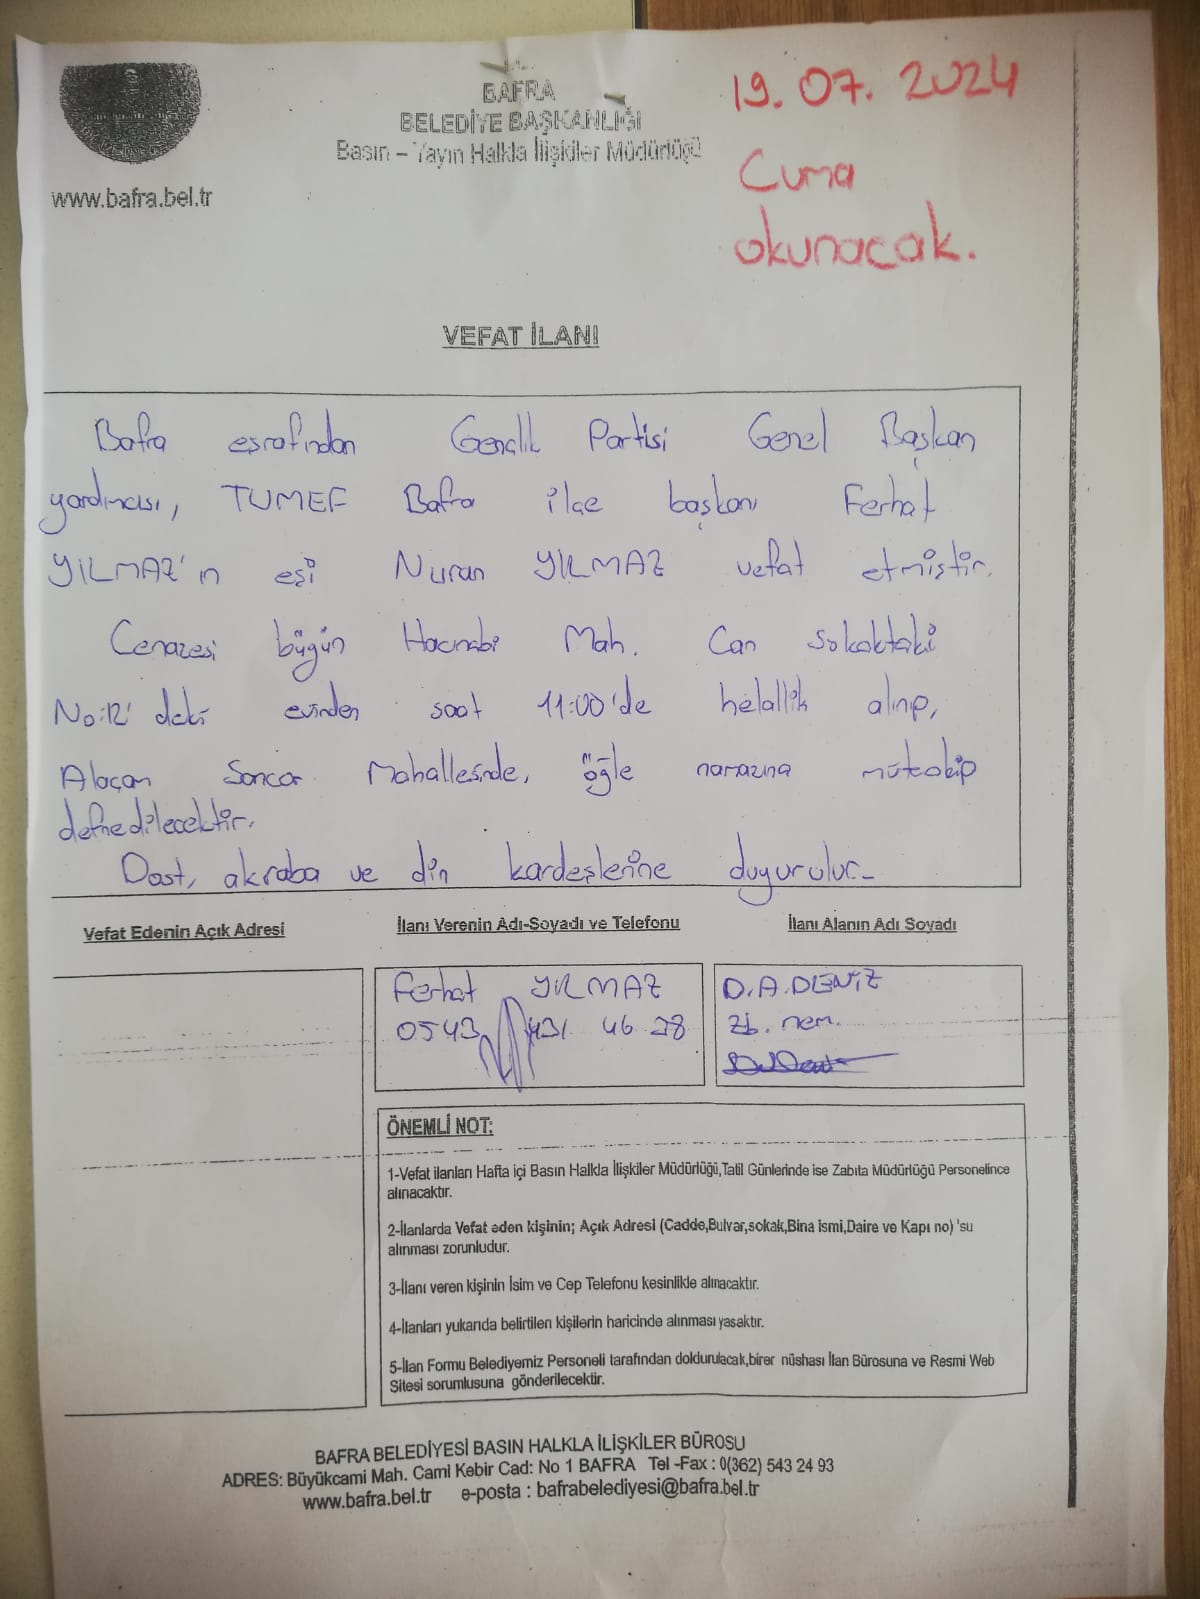 BAFRA
BELEDİYE BAŞKANLIĞI
Basın – Yayın Halkla İlişkiler Müdürlüğü
www.bafra.bel.tr
19.07.2024
Cuma
okunacak.
VEFAT İLANI
Bafra eşrafından Gençlik Partisi Genel Başkan
yardımcısı, TUMEF Bafra ilçe başkanı Ferhat
YILMAZ'ın eşi Nuran YILMAZ vefat etmiştir.
Cenazesi bügün Hacınabi Mah. Can sokaktaki
No:12' deki evinden saat 11:00'de helallik alınıp,
Alaçam Soncor Mahallesinde, öğle namazına mütakip
defnedilecektir.
Dost, akraba ve din kardeşlerine duyurulur.-
Vefat Edenin Açık Adresi
İlanı Verenin Adı-Soyadı ve Telefonu
İlanı Alanın Adı Soyadı
Ferhat YILMAZ
0543 431 46 28
D.A.DENİZ
Zb. mem.
ÖNEMLİ NOT:
1-Vefat ilanları Hafta içi Basın Halkla İlişkiler Müdürlüğü,Tatil Günlerinde ise Zabıta Müdürlüğü Personelince
alınacaktır.
2-İlanlarda Vefat eden kişinin; Açık Adresi (Cadde,Bulvar,sokak,Bina ismi,Daire ve Kapı no) 'su
alınması zorunludur.
3-İlanı veren kişinin İsim ve Cep Telefonu kesinlikle alınacaktır.
4-İlanları yukarıda belirtilen kişilerin haricinde alınması yasaktır.
5-İlan Formu Belediyemiz Personeli tarafından doldurulacak,birer nüshası İlan Bürosuna ve Resmi Web
Sitesi sorumlusuna gönderilecektir.
BAFRA BELEDİYESİ BASIN HALKLA İLİŞKİLER BÜROSU
ADRES: Büyükcami Mah. Cami Kebir Cad: No 1 BAFRA Tel -Fax : 0(362) 543 24 93
www.bafra.bel.tr e-posta : bafrabelediyesi@bafra.bel.tr